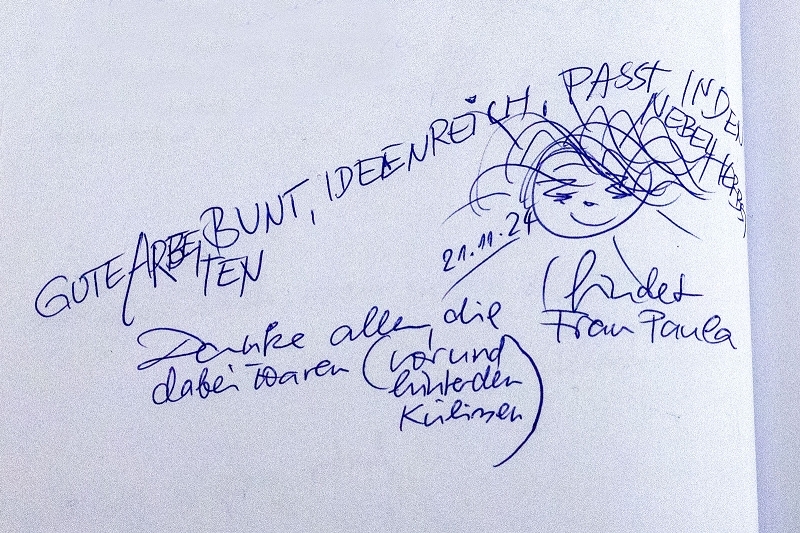 GUTE ARBEITEN BUNT, IDEENREICH, PASST IN DEN
NEBELHERBST
21.11.24
(findet
Frau Paula
Danke allen, die
dabei waren (vor und
hinter den
Kulissen)